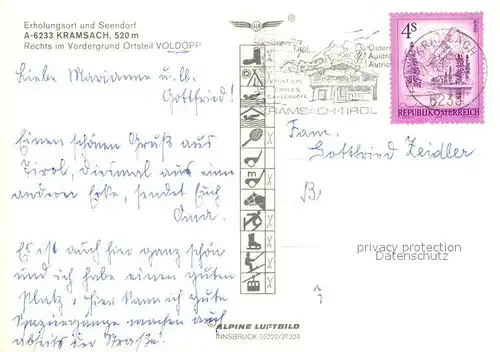 Erholungsort und Seendorf
A-6233 KRAMSACH, 520 m
Rechts im Vordergrund Ortsteil VOLDÖPP
Liebe Marianne u. lb.
Gottfried!
Einen schönen Gruß aus
Tirol, diesmal aus einer
anderen Ecke, sendet Euch
Oma.
Es ist auch hier ganz schön
und ich habe einen guten
Platz, hier kann ich gute
Spaziergänge machen auch
abseits der Straße.
KRAMSACH-TIROL
6233
4S
REPUBLIK ÖSTERREICH
Fam.
Gottfried Zeidler
privacy protection
watermark
ALPINE LUFTBILD
INNSBRUCK 05222/27324